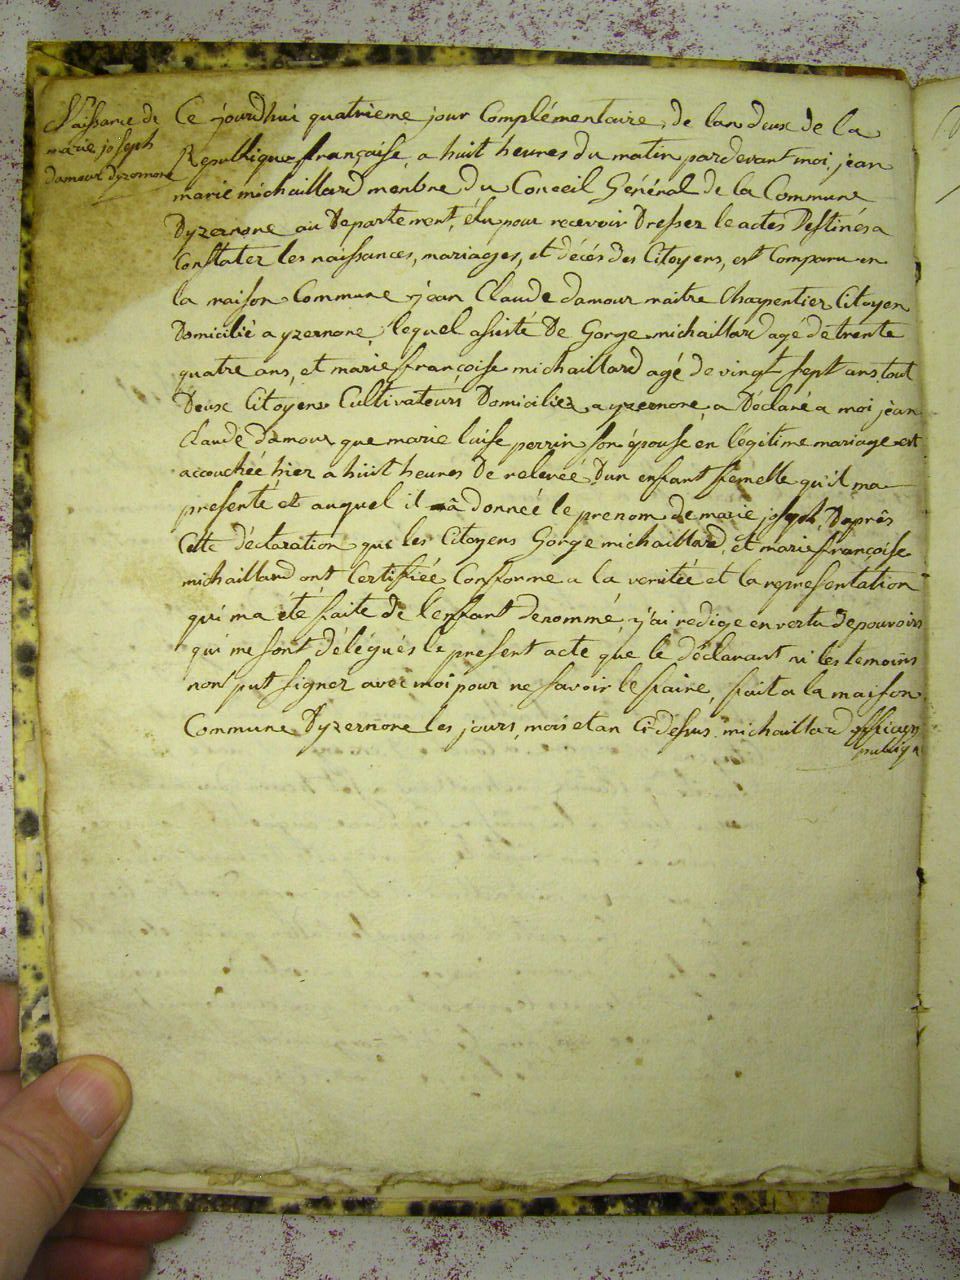 Naissance de
marie joseph
damour dyzernone
Ce jourdhui quatrieme jour Complémentaire, de lan deux de la
Republique française, a huit heures du matin pardevant moi jean
marie michaillard menbre du Conceil Général de la Commune
Dyzernone au Departement, élu pour recevoir Dresser le actes Destinés a
Constater les naissances, mariages, et décés des Citoyens, est Comparu en
la maison Commune jean Claude damour maitre Charpentier Citoyen
Domicilié a yzernone, lequel assisté De Gorge michaillard agé de trente
quatre ans, et marie françoise michaillard agé de vingt sept ans tout
Deux Citoyens Cultivateurs Domiciliez a yzernone, a Déclaré a moi jean
Claude damour que marie luise perrin son épouse en légitime mariage est
accouchée hier a huit heures De relevée Dun enfant fémelle qu'il ma
presenté et auquel il a donnée le prenom de marie joseph, Daprês
Cette déclaration que les Citoyens Gorge michaillard, et marie françoise
michaillard ont Certifiée Conforme a la veritée et la representation
qui ma été faite de l'enfant denommé, j'ai redigé en vertu de pouvoirs
qui me sont délégués le present acte que le déclarant ni les temoins
non put signer avec moi pour ne savoir le faire, fait a la maison
Commune Dyzernone les jours, mois et an Ci dessus. michaillard officier
public